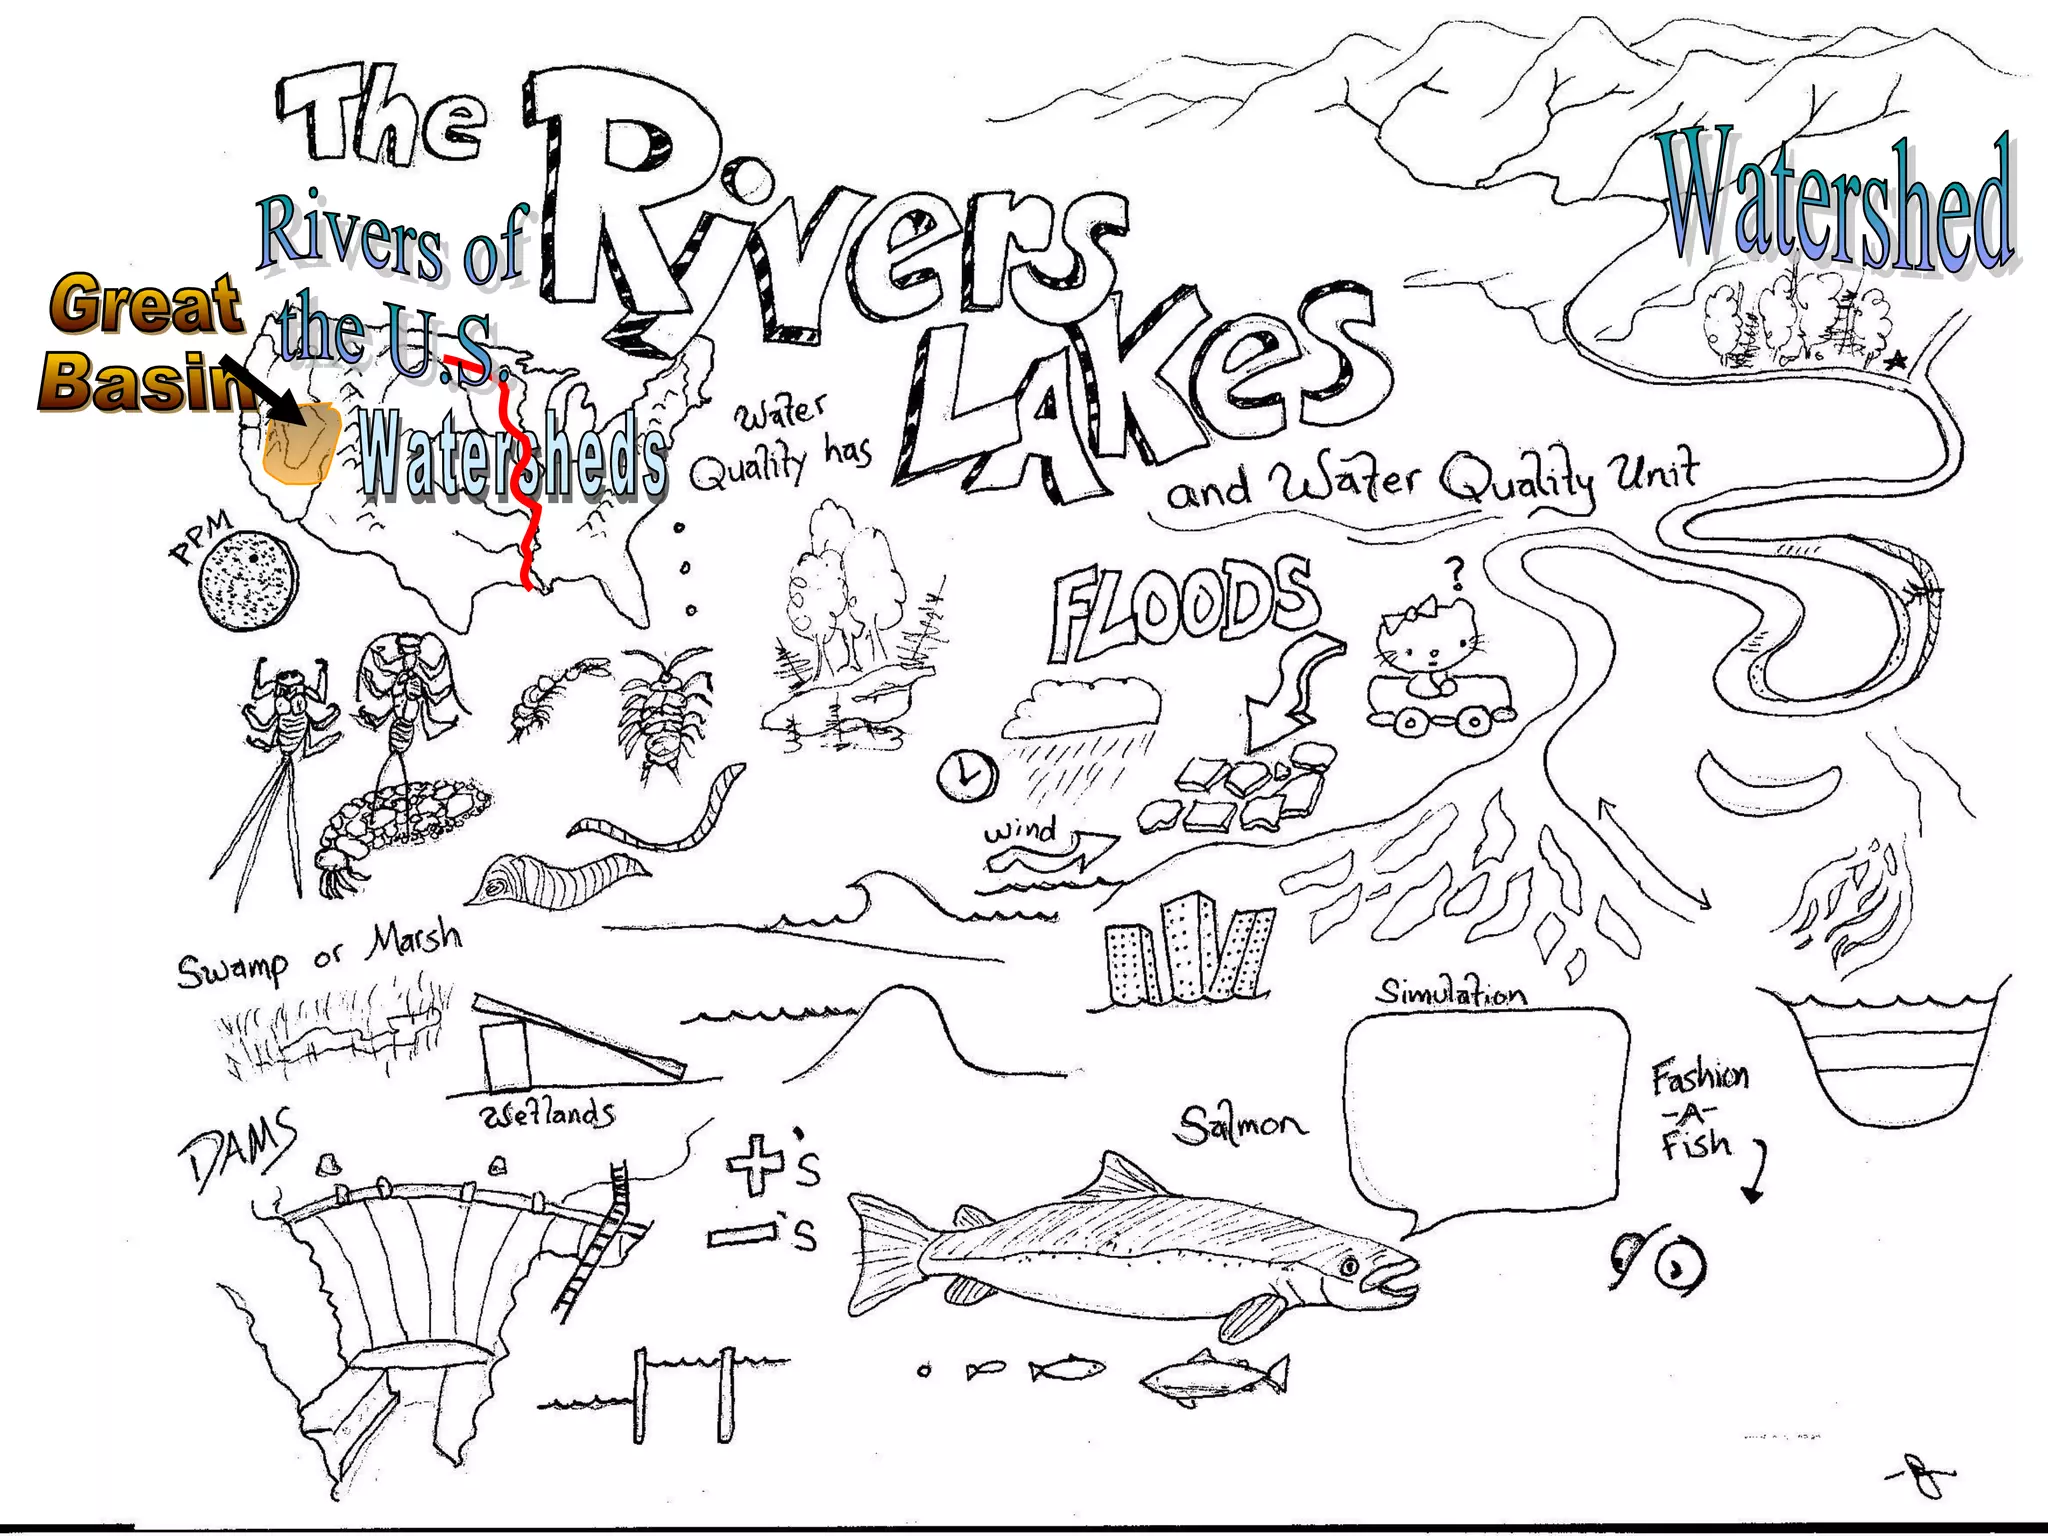 The Rivers
LAKes
and Water Quality Unit
Watershed
Rivers of
the U.S.
Great
Basin
Watersheds
Water
Quality has
PPM
FLOODS
?
wind
Swamp or Marsh
Wetlands
Simulation
Fashion
-A-
Fish
Salmon
DAMS
+'s
-'s